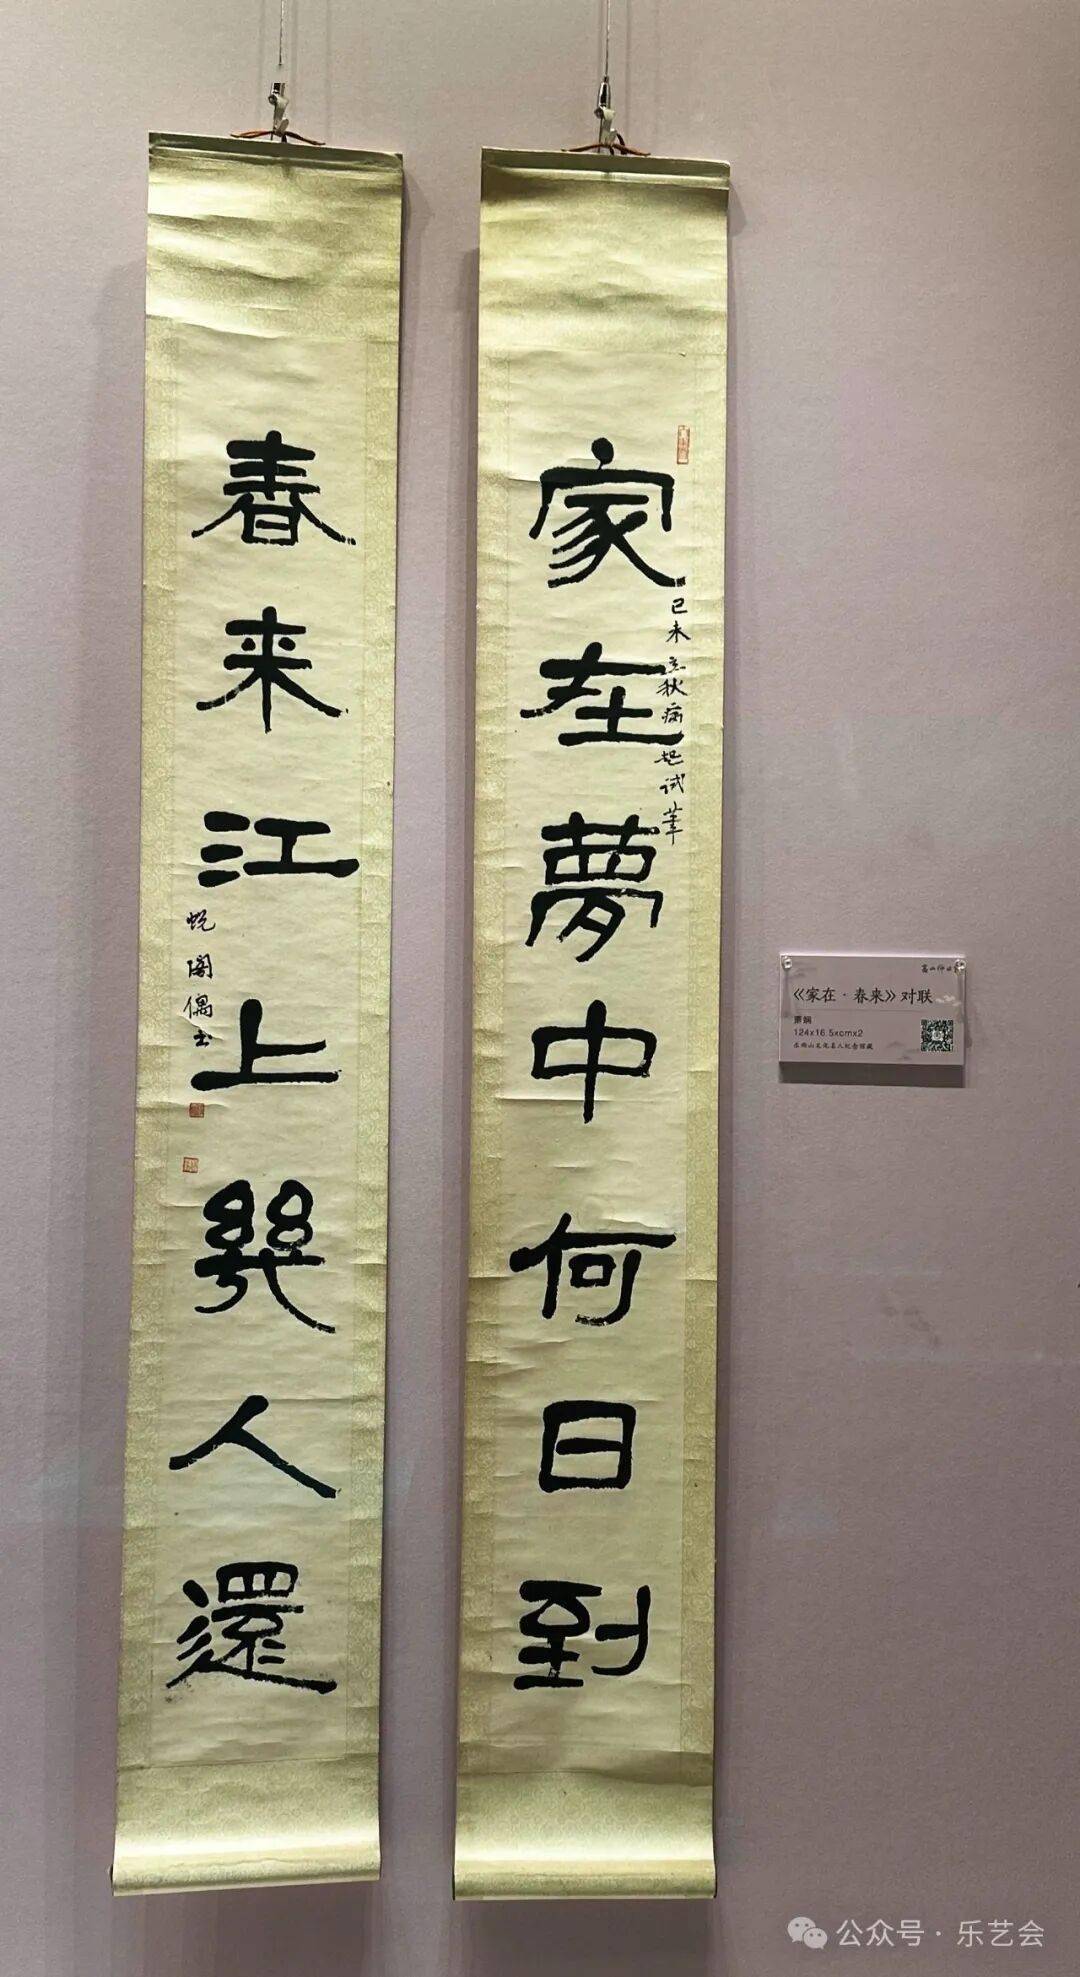 家在夢中何日到
己未立秋病起试笔
春来江上幾人還
蜕阁偶书
《家在·春来》对联
萧娴
124x16.5xcmx2
公众号·乐艺会